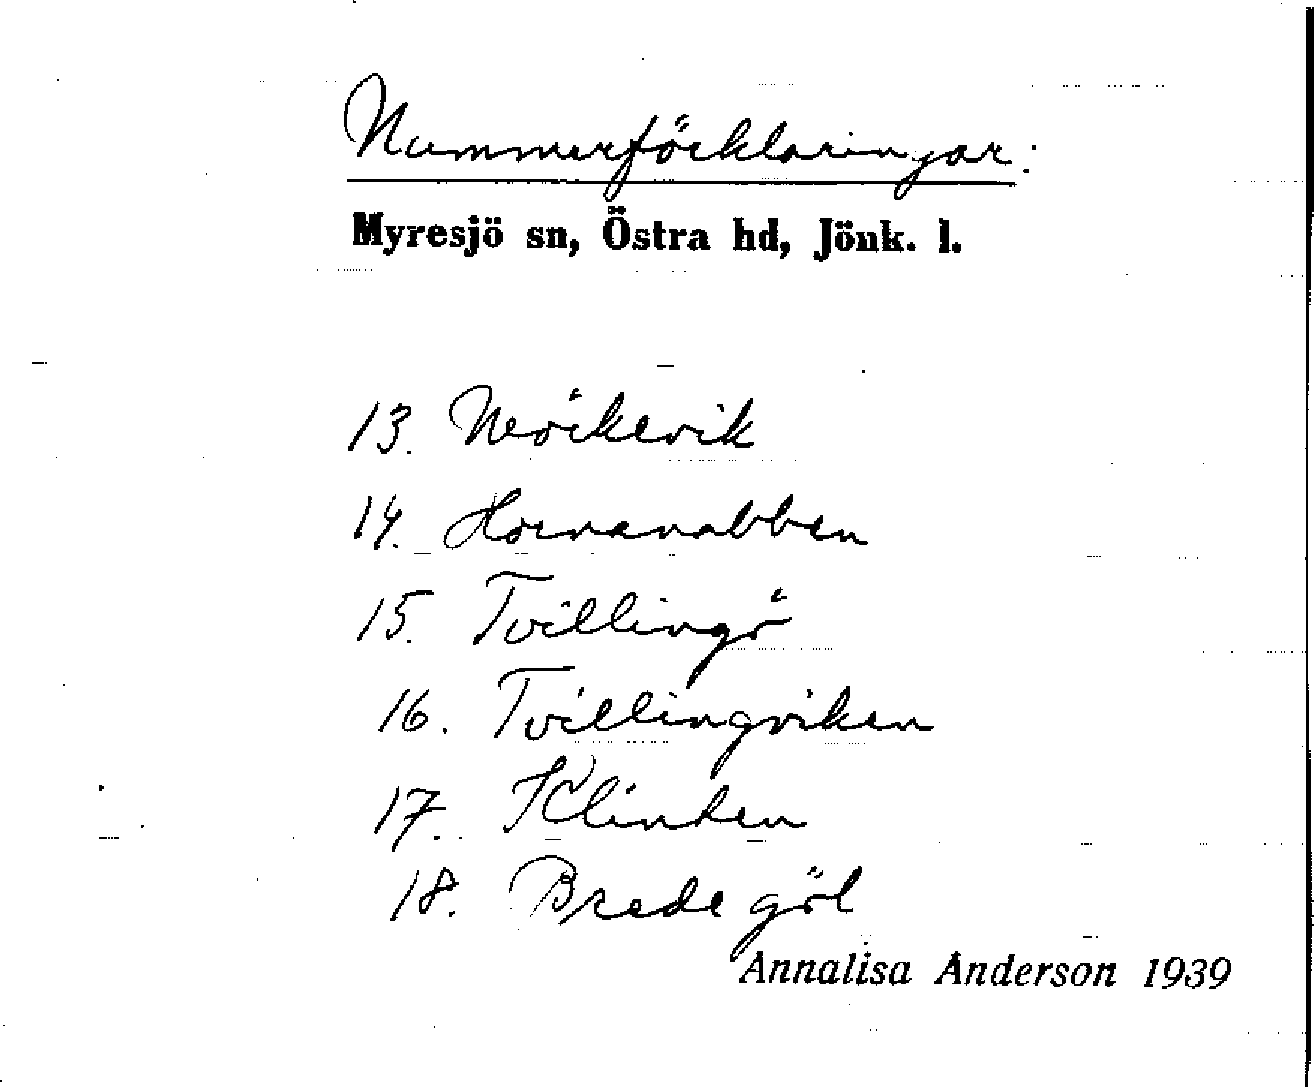 Nummerförklaringar:
Myresjö sn, Östra hd, Jönk. l.
13. Neröikevik
14. Hornanabben
15. Tvillingö
16. Tvillingviken
17. Klinten
18. Brede göl
Annalisa Anderson 1939